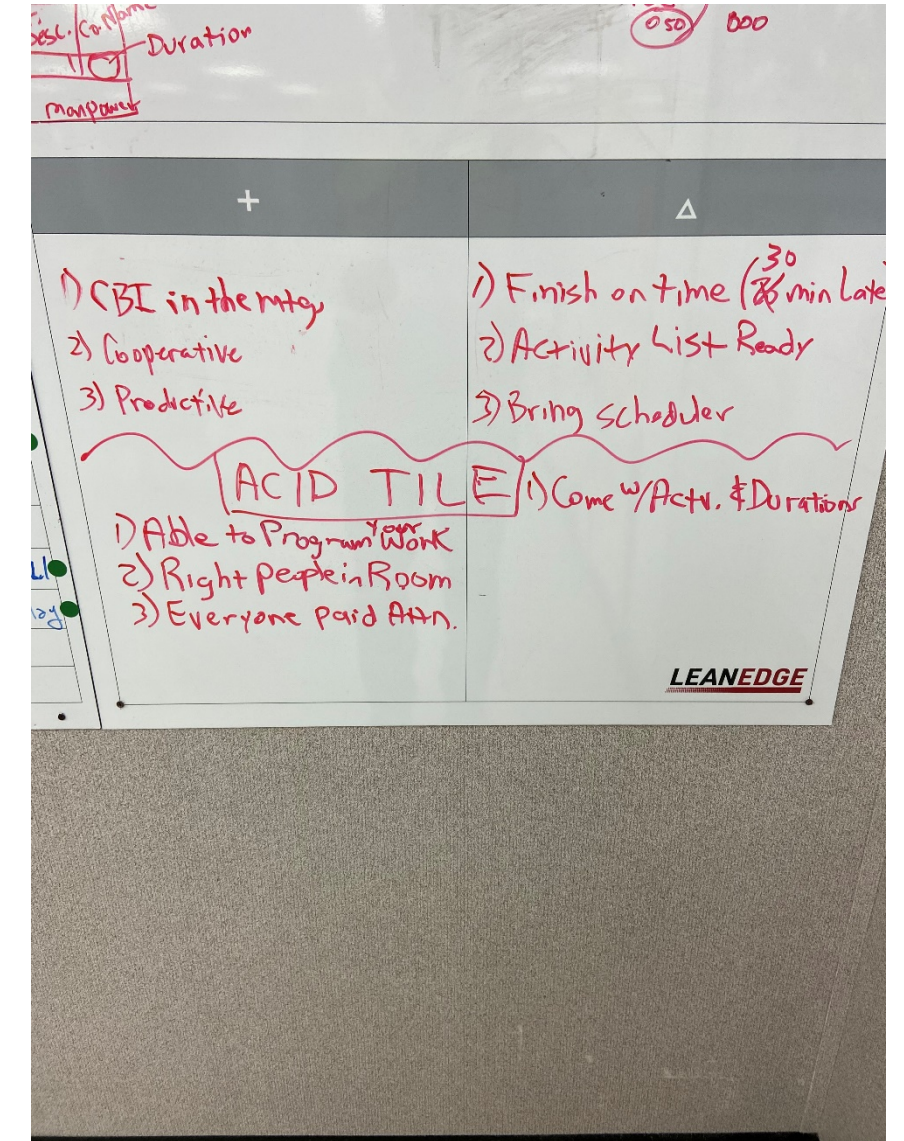 Desc. Co Name
Duration
manpower
050 000
+ Δ
1) CBI in the mtg
2) Cooperative
3) Productive
1) Finish on time (30 min Late
2) Activity List Ready
3) Bring scheduler
ACID TILE
1) Able to Program Your Work
2) Right people in Room
3) Everyone paid Attn.
1) Come w/Actv. & Durations
LEANEDGE